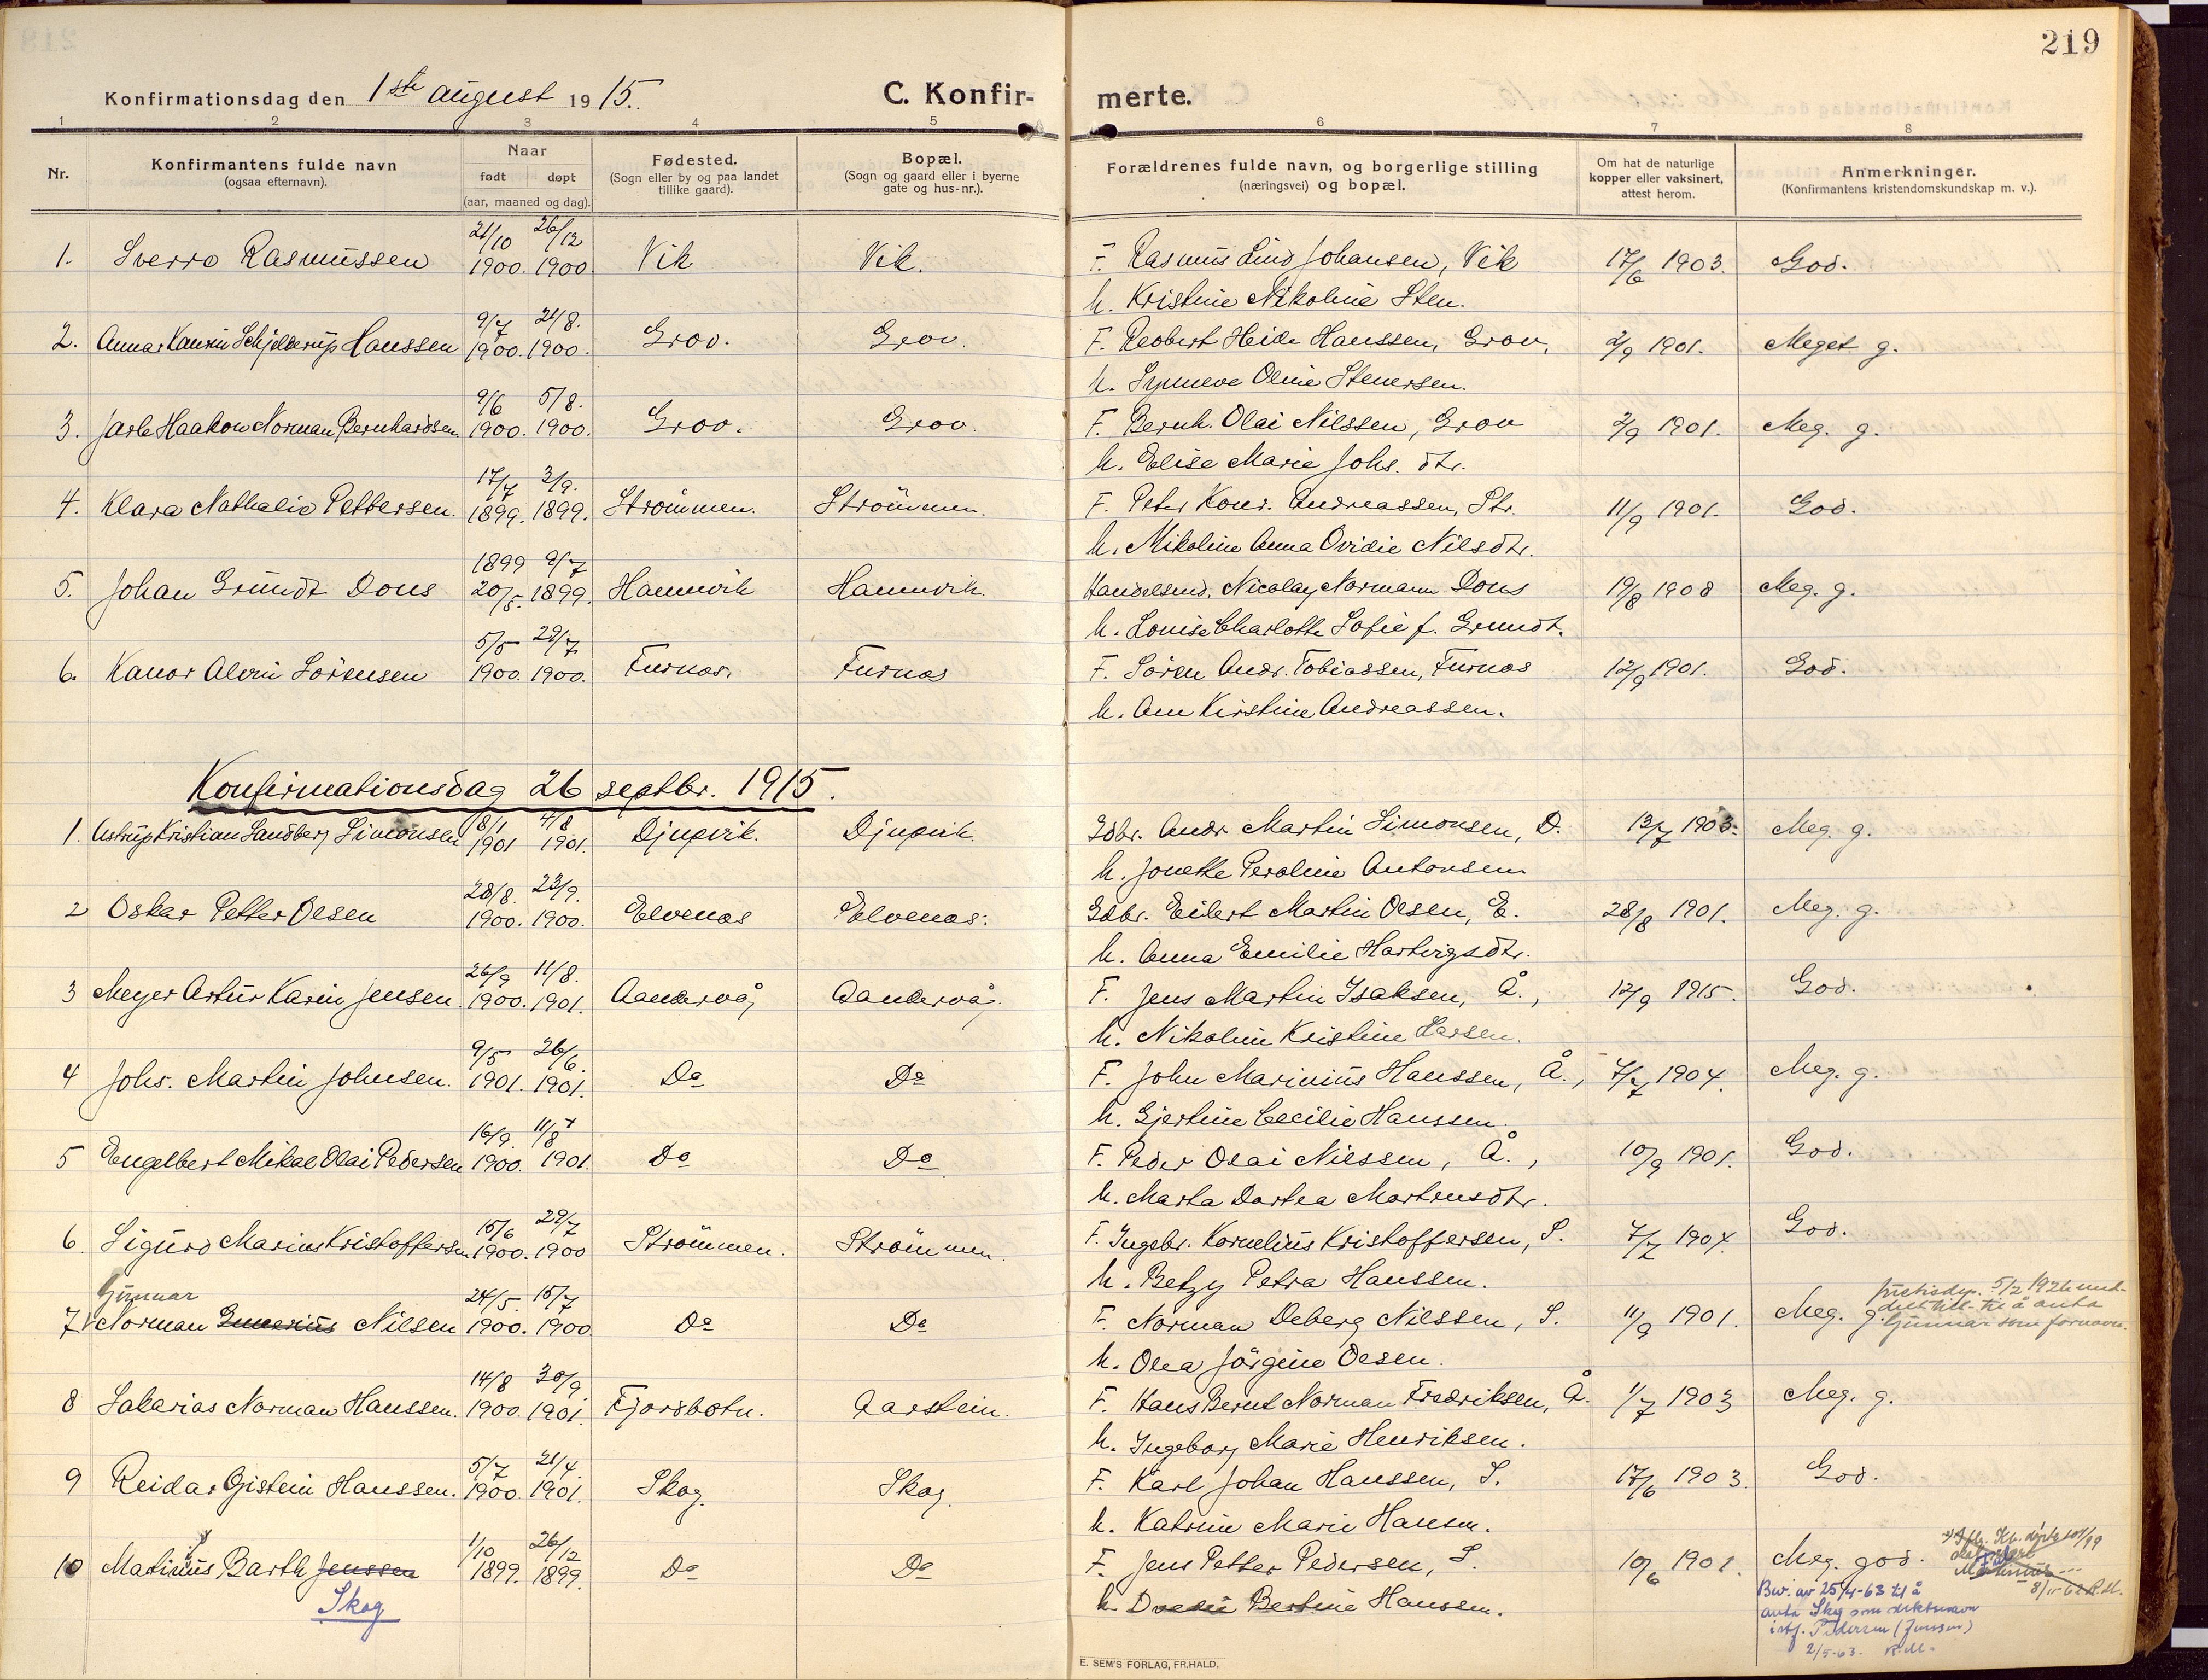 219
Konfirmationsdag den 1ste august 1915. C. Konfirmerte.
1 2 3 4 5 6 7 8
Nr. Konfirmantens fulde navn (ogsaa efternavn). Naar født døpt (aar, maaned og dag). Fødested. (Sogn eller by og paa landet tillike gaard). Bopæl. (Sogn og gaard eller i byerne gate og hus-nr.). Forældrenes fulde navn, og borgerlige stilling (næringsvei) og bopæl. Om hat de naturlige kopper eller vaksinert, attest herom. Anmerkninger. (Konfirmantens kristendomskundskap m. v.).
1. Sverre Rasmussen 21/10 1900. 26/12 1900. Vik Vik. F. Rasmus Lind Johansen, Vik 17/6 1903. God.
h. Kristine Nikoline Sten.
2. Schjelderup Hanssen 9/7 1900. 21/8. 1900. Grov. Grov. F. Reobert Heide Hanssen, Grov, 2/9 1901. Meget g.
h. Synneve Oline Stenersen.
3. Jarle Haakon Norman Bernhardsen. 9/6 1900. 5/8. 1900. Grov. Grov. F. Bernh. Olai Nilssen, Grov 2/9 1901. Meg. g.
h. Elise Marie Johs. dtr.
4. Klara Nathalie Pettersen. 17/7 1899. 3/9. 1899. Strömmen. Strömmen. F. Peter Konr. Andreassen, Str. 11/9 1901. God.
h. Nikoline Anna Ovidie Nilsdtr.
5. Johan Grundt Dons 1899 20/5. 9/7 1899. Hamnvik Hamnvik. Handelsmd. Nicolay Normann Dons 19/8 1908 Meg. g.
h. Louise Charlotte Sofie f. Grundt.
6. Kanor Alvin Sörensen 5/5 1900. 29/7 1900. Furnes. Furnes F. Sören Andr. Tobiassen, Furnes 12/9 1901. God.
h. Ane Kirstine Andreassen.
Konfirmationsdag 26 septbr. 1915.
1. Astrup Kristian Sandberg Simonsen 8/1 1901 4/8 1901. Djupvik. Djupvik. Gdbr. Andr. Martin Simonsen, D. 13/7 1903. Meg. g.
h. Jonette Peroline Antonsen
2 Oskar Petter Olsen 28/8. 1900. 23/9. 1900. Elvenes Elvenes. Gdbr. Eilert Martin Olsen, E. 28/8 1901. Meg. g.
h. Anna Emilie Hartvigsdtr.
3 Meyer Artur Karin Jensen. 26/9 1900. 11/8. 1901. Aandervåg Aandervåg. F. Jens Martin Isaksen, Å., 12/9 1915. God.
h. Nikoline Kristine Larsen.
4 Johs. Martin Johnsen. 9/5 1901. 26/6. 1901. Do Do F. John Marinius Hanssen, Å., 7/7 1904. Meg. g.
h. Gjertine Cecilie Hanssen.
5 Engelbert Mikal Olai Pedersen 16/9. 1900. 11/8 1901. Do Do F. Peder Olai Nilssen, Å., 10/9 1901. God.
h. Marta Dortea Martensdtr.
6. Sigurd Marius Kristoffersen 15/6 1900. 29/7 1900 Strömmen. Strömmen. F. Ingebr. Kornelius Kristoffersen, S. 7/7 1904. God.
h. Betzy Petra Hanssen.
Gunnar
7 Norman Nilsen 24/5. 1900. 15/7 1900. Do Do F. Norman Deberg Nilssen, S. 11/9 1901. Meg. g. 5/2 1926 til å anta Gunnar som fornavn.
h. Olea Jörgine Olsen.
8 Sakarias Norman Hanssen. 14/8 1900. 30/9. 1901. Fjordbotn. Aarstein. F. Hans Bernt Norman Fredriksen, Å. 1/7 1903 Meg. g.
h. Ingeborg Marie Henriksen.
9 Reidar Øistein Hanssen. 5/7 1900. 21/4. 1901. Skog. Skog. F. Karl Johan Hanssen, S. 17/6 1903. God.
h. Katrine Marie Hansen.
10 Matinius Barth Jenssen 1/10 1899. 26/12 1899. Do Do F. Jens Petter Pedersen, S. 10/6 1901. Meg. god.
Skog
h. Bertine Hanssen.
Bev. av 25/4-63 til å
anta Skog som slektsnavn
istf. Pedersen (Jenssen)
2/5-63. R.M.
E. SEM'S FORLAG, FR.HALD.